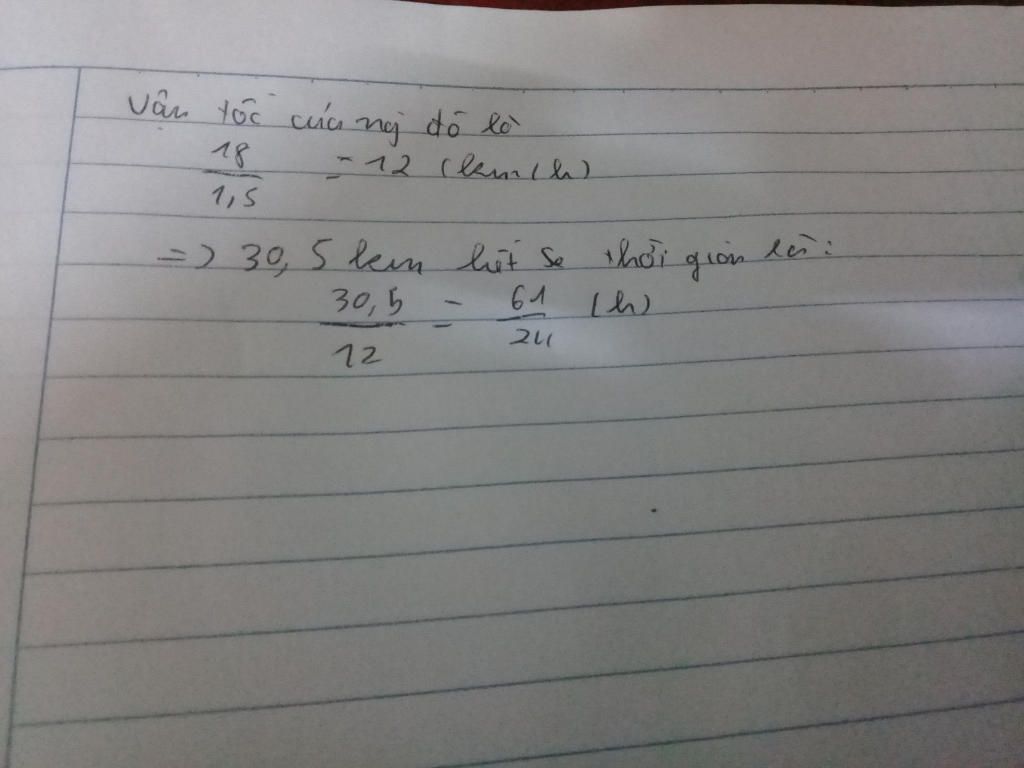 Vận tốc của ng đó là
18 / 1,5 = 12 (km/h)
=> 30,5 km hết số thời gian là:
30,5 / 12 = 61 / 24 (h)